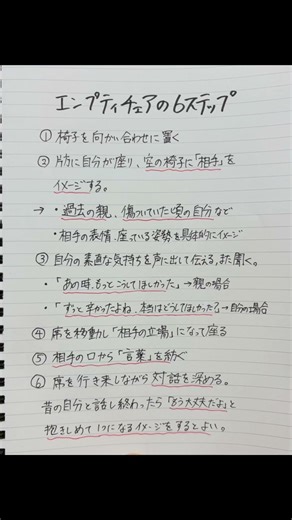 エンプティチェアの6ステップ
① 椅子を向かい合わせに置く
② 片方に自分が座り、空の椅子に「相手」を
イメージする。
→ ・過去の親、傷ついていた頃の自分など
・相手の表情、座っている姿勢を具体的にイメージ
③ 自分の素直な気持ちを声に出して伝える、また聞く。
・「あの時、もっとこうしてほしかった」→ 親の場合
・「ずっと辛かったよね、本当はどうしてほしかった?」→ 自分の場合
④ 席を移動し「相手の立場」になって座る
⑤ 相手の口から「言葉」を紡ぐ
⑥ 席を行き来しながら対話を深める。
昔の自分と話し終わったら「もう大丈夫だよ」と
抱きしめて1つになるイメージをするとよい。